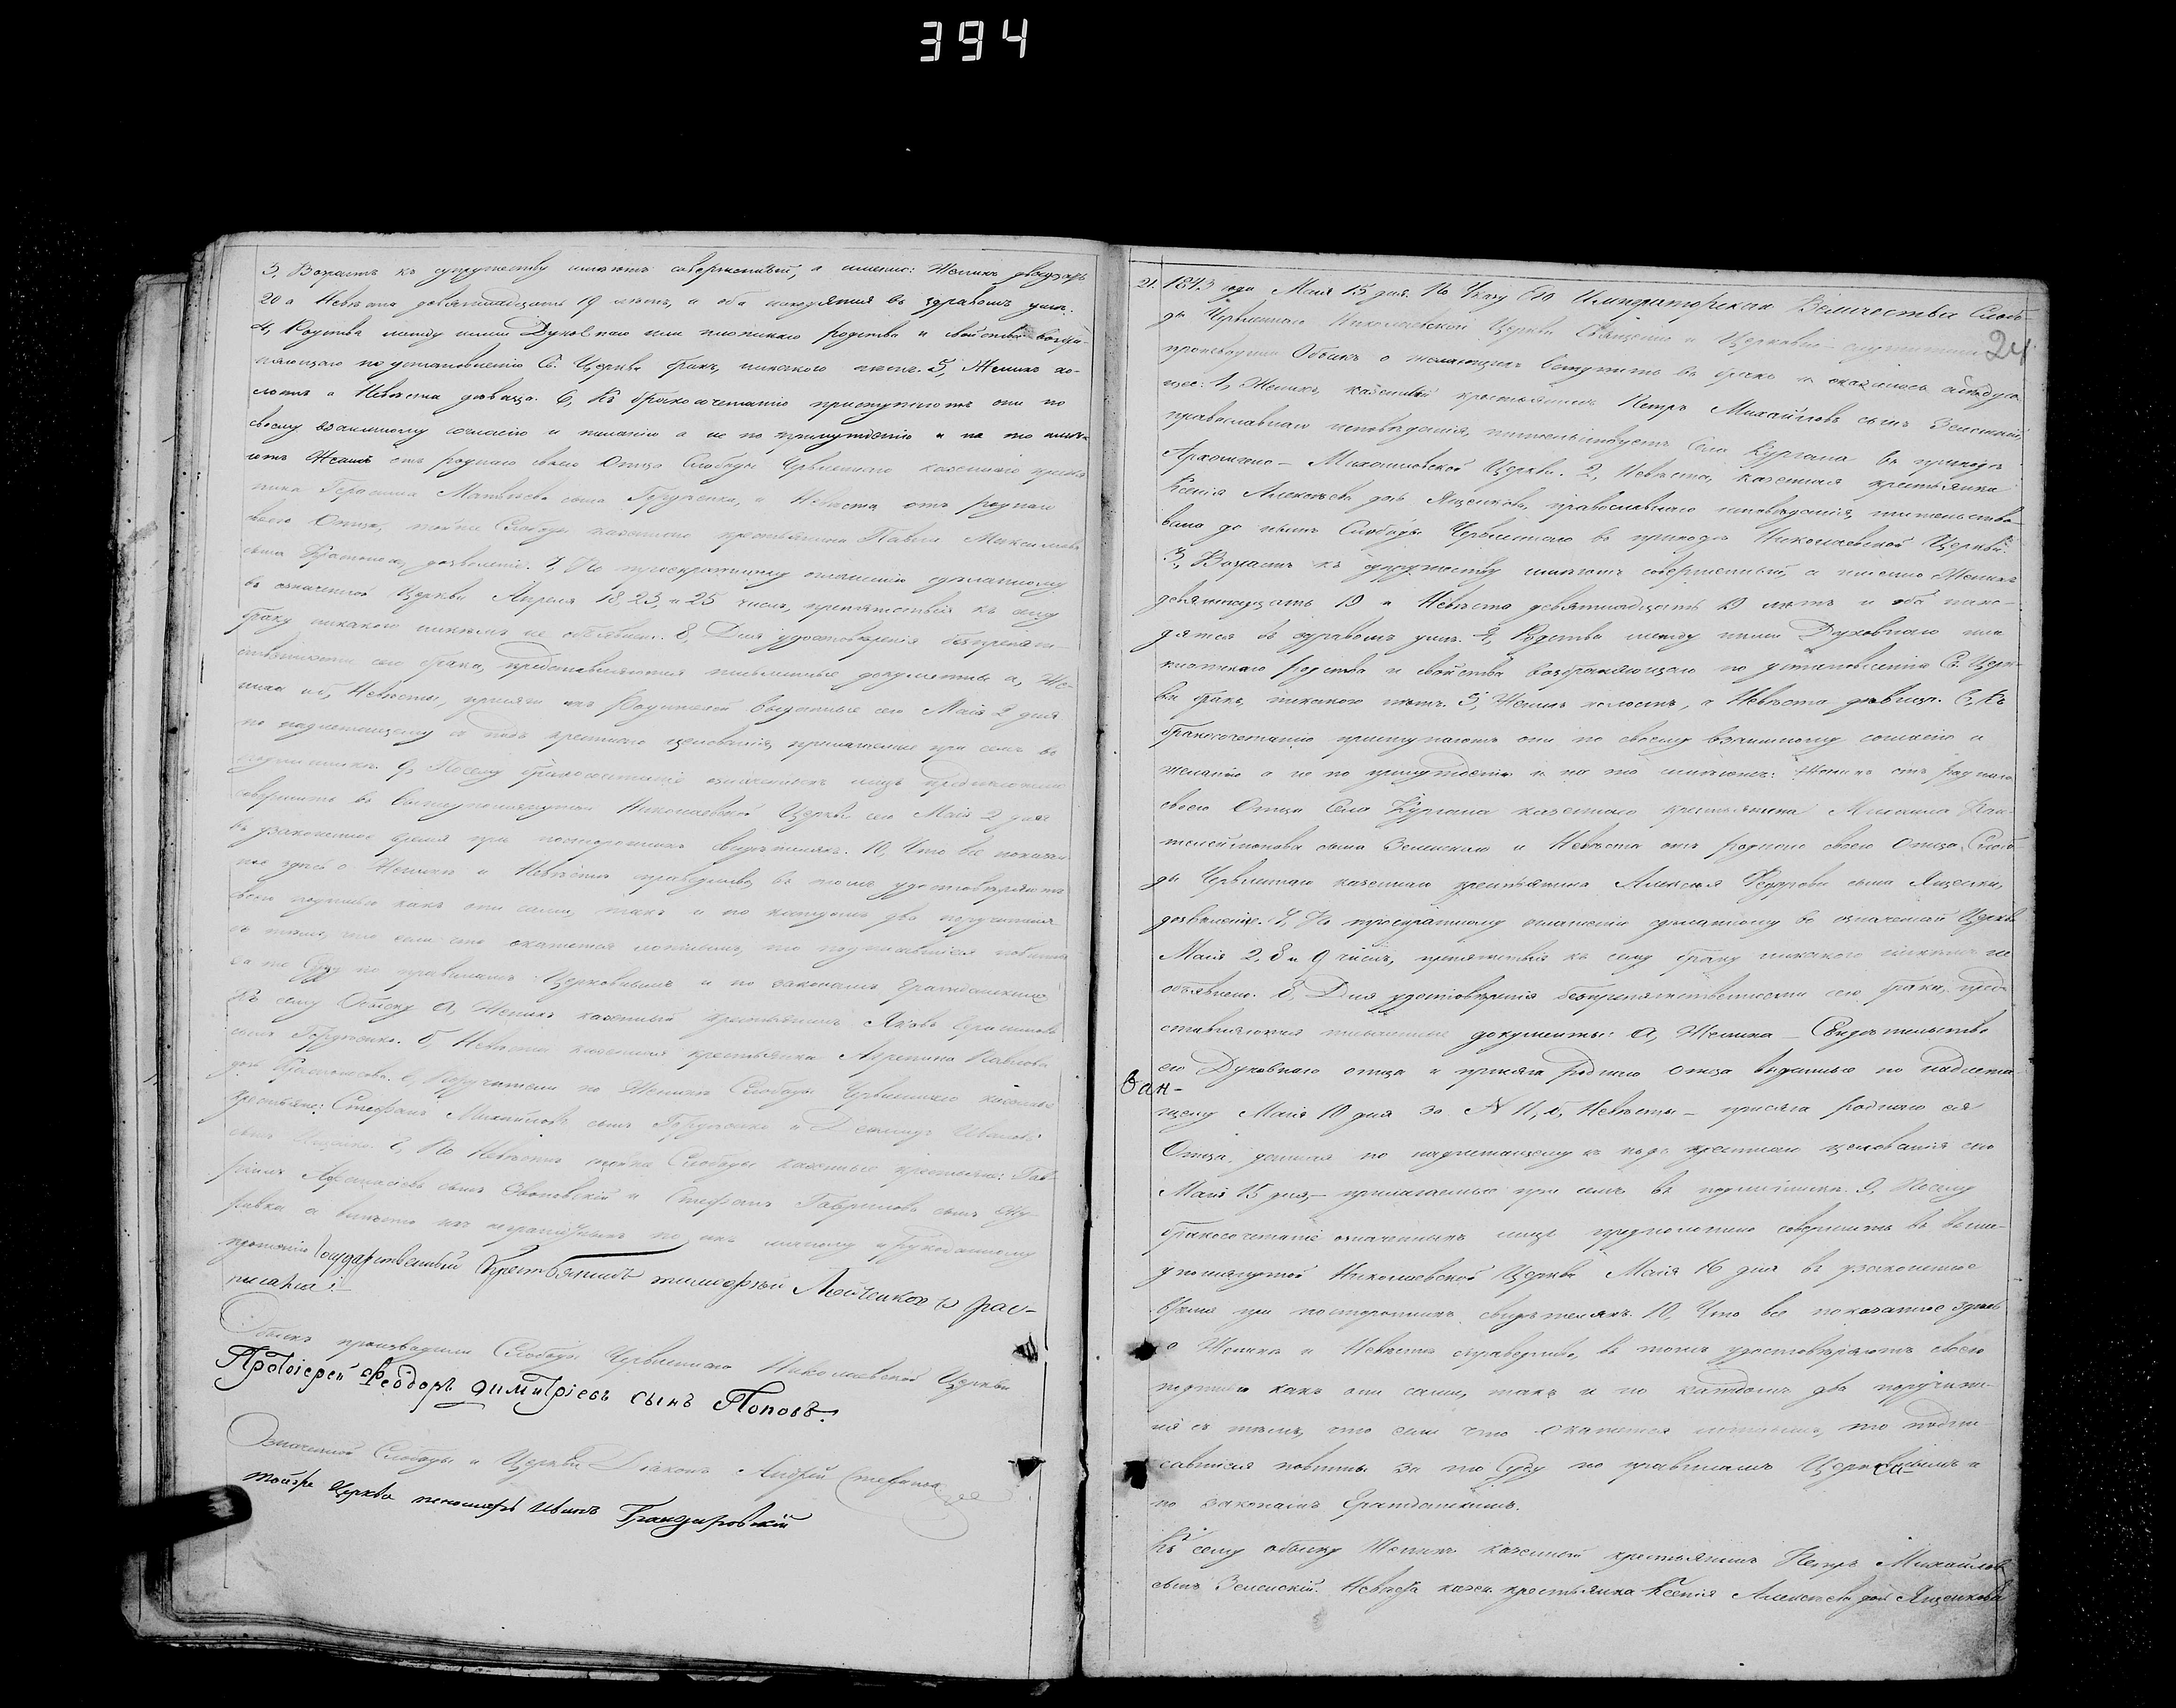 394
3, Возрастъ къ супружеству имѣютъ совершенный, а именно: Женихъ двадцать
20 а Невѣста девятнадцать 19 лѣтъ, и оба находятся въ здравомъ умѣ.
4, Родства между ними Духовнаго или плотскаго родства и свойства возбра-
няющаго по установленію Св. Церкви бракъ, никакого нѣтъ. 5, Женихъ хо-
лостъ а Невѣста дѣвица. 6, Къ бракосочетанію приступаютъ они по
своему взаимному согласію и желанію а не по принужденію и на то имѣ-
ютъ Женихъ отъ роднаго своего Отца Слободы Червленнаго казеннаго крестья
нина Герасима Матвѣева сына Гордіенка, а Невѣста отъ роднаго
своего Отца, той же Слободы казеннаго крестьянина Павла Максимова
сына дозволеніе. 7, По троекратному оглашенію сдѣланному
въ означенной Церкви Апреля 18, 23, и 25 числъ, препятствія къ сему
браку никакого никѣмъ не объявлено. 8, Для удостовѣренія безпрепят-
ственности сего брака, представляются письменные документы а, Же-
ниха и б, Невѣсты, присяги ихъ Родителей выданные сего Маія 2 дня
по надлежащему и подъ крестнаго цѣлованія, прилагаемые при семъ въ
подлинникѣ. 9, Посему бракосочетаніе означенныхъ лицъ предположено
совершить въ вышеупомянутой Николаевской Церкви сего Маія 2 дня
въ узаконенное время при постороннихъ свидѣтеляхъ. 10, Что все показан
ное здѣсь о Женихѣ и Невѣстѣ справедливо, въ томъ удостовѣряютъ
своею подписью какъ они сами, такъ и по каждомъ два поручителя
съ тѣмъ, что если что окажется ложнымъ, то подписавшіеся повинны
за то Суду по правиламъ Церковнымъ и по законамъ Гражданскимъ
Къ сему Обыску а, Женихъ казенный крестьянинъ Яковъ Герасимовъ
сынъ Гордіенко. б, Невѣста казенная крестьянка Агрепина Павлова
дочь Поручители по Женихѣ Слободы Червленнаго казенные
крестьяне: Стефанъ Михайловъ сынъ Гордіенко и Демидъ Ивановъ
сынъ По Невѣстѣ тойже Слободы казенные крестьяне: Гав-
ріилъ Афанасіевъ сынъ и Стефанъ Гавриловъ сынъ
а вмѣсто ихъ неграмотныхъ по ихъ личному и рукоданному
прошенію Государственный Крестьянинъ тимофтѣй рас-
писался
Обыскъ производили Слободы Червленнаго Николаевской Церкви
Протоіерей Феодоръ Димитріевъ сынъ Поповъ.
Означенной Слободы и Церкви Діаконъ Андрей Стефановъ
Тойже Церкви пономарь Иванъ
21. 1843 года Маія 15 дня. По Указу Его Императорскаго Величества Слобо-
24
ды Червленнаго Николаевской Церкви Священно и Церковно-служители
производили Обыскъ о желающихъ вступить въ бракъ и оказалось слѣдую
щее: 1, Женихъ, казенный крестьянинъ Петръ Михайловъ сынъ Зеленскій,
православнаго исповѣданія, жительствуетъ Села Кургана въ приходѣ
Архангело-Михайловской Церкви. 2, Невѣста, казенная крестьянка
Ксенія Алексѣева дочь Ященкова, православнаго исповѣданія, жительство
вала до нынѣ Слободы Червленнаго въ приходѣ Николаевской Церкви.
3, Возрастъ къ супружеству имѣютъ совершенный, а именно Женихъ
девятнадцать 19 а Невѣста девятнадцать 19 лѣтъ и оба нахо-
дятся въ здравомъ умѣ. 4, Родства между ними Духовнаго или
плотскаго родства и свойства возбраняющаго по установленію Св. Церк-
ви бракъ, никакого нѣтъ. 5, Женихъ холостъ, а Невѣста дѣвица. 6, Къ
бракосочетанію приступаютъ они по своему взаимному согласію и
желанію а не по принужденію и на то имѣютъ: Женихъ отъ роднаго
своего Отца Села Кургана казеннаго крестьянина Михаила Пан-
телеймонова сына Зеленскаго и Невѣста отъ роднаго своего Отца Слобо-
ды Червленнаго казеннаго крестьянина Алексѣя Федорова сына Ященки,
дозволеніе. 7, По троекратному оглашенію сдѣланному въ означенной Церкви
Маія 2, 8 и 9 числъ, препятствія къ сему браку никакого никѣмъ не
объявлено. 8, Для удостовѣренія безпрепятственности сего брака, пред-
ставляются письменные документы: а, Жениха - Свидѣтельство
его Духовнаго отца и присяга роднаго отца выданные по надлежа-
щему Маія 10 дня за N 11, б, Невѣсты - присяга роднаго ея
Отца, данная по надлежащему и подъ крестнаго цѣлованія сего
Маія 15 дня, - прилагаемые при семъ въ подлинникѣ. 9, Посему
бракосочетаніе означенныхъ лицъ предположено совершить въ выше-
упомянутой Николаевской Церкви Маія 16 дня въ узаконенное
время при постороннихъ свидѣтеляхъ. 10, Что все показанное здѣсь
о Женихѣ и Невѣстѣ справедливо, въ томъ удостовѣряютъ своею
подписью какъ они сами, такъ и по каждомъ два поручите-
ля съ тѣмъ, что если что окажется ложнымъ, то подпи-
савшіеся повинны за то Суду по правиламъ Церковнымъ и
по законамъ Гражданскимъ.
Къ сему обыску Женихъ казенный крестьянинъ Петръ Михайловъ
сынъ Зеленскій. Невѣста казен. крестьянка Ксенія Алексѣева дочь Ященкова